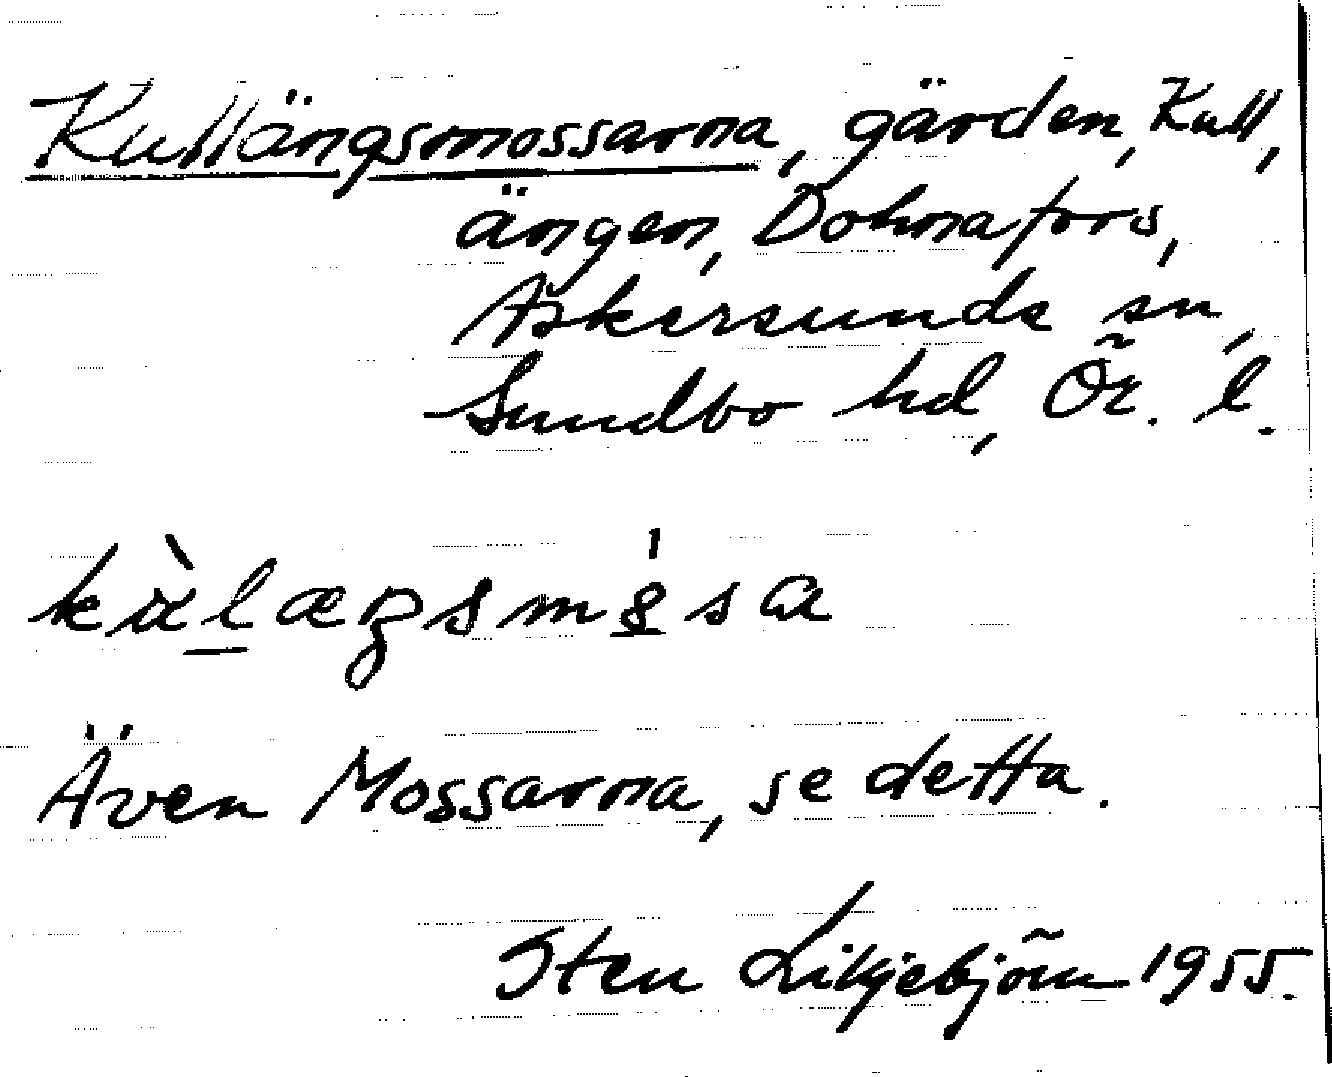 Kullängsmossarna, gärden, Kull,
ängen, Dohnafors,
Askersunds sn,
Sundbo hd, Ör. l.
Även Mossarna, se detta.
Sten 1955.